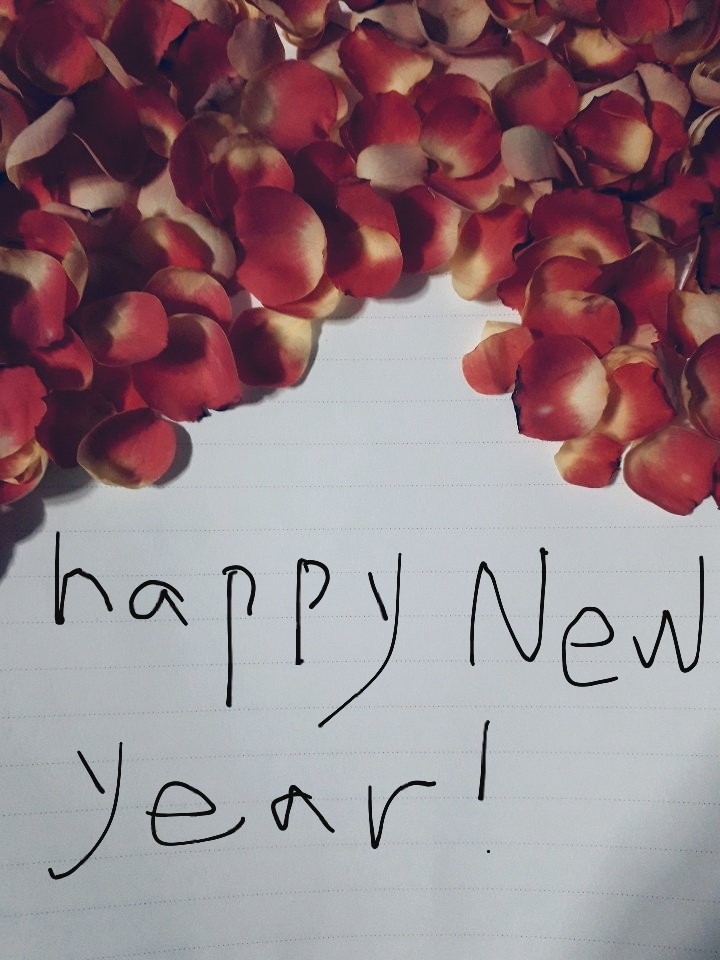 happy New
year!